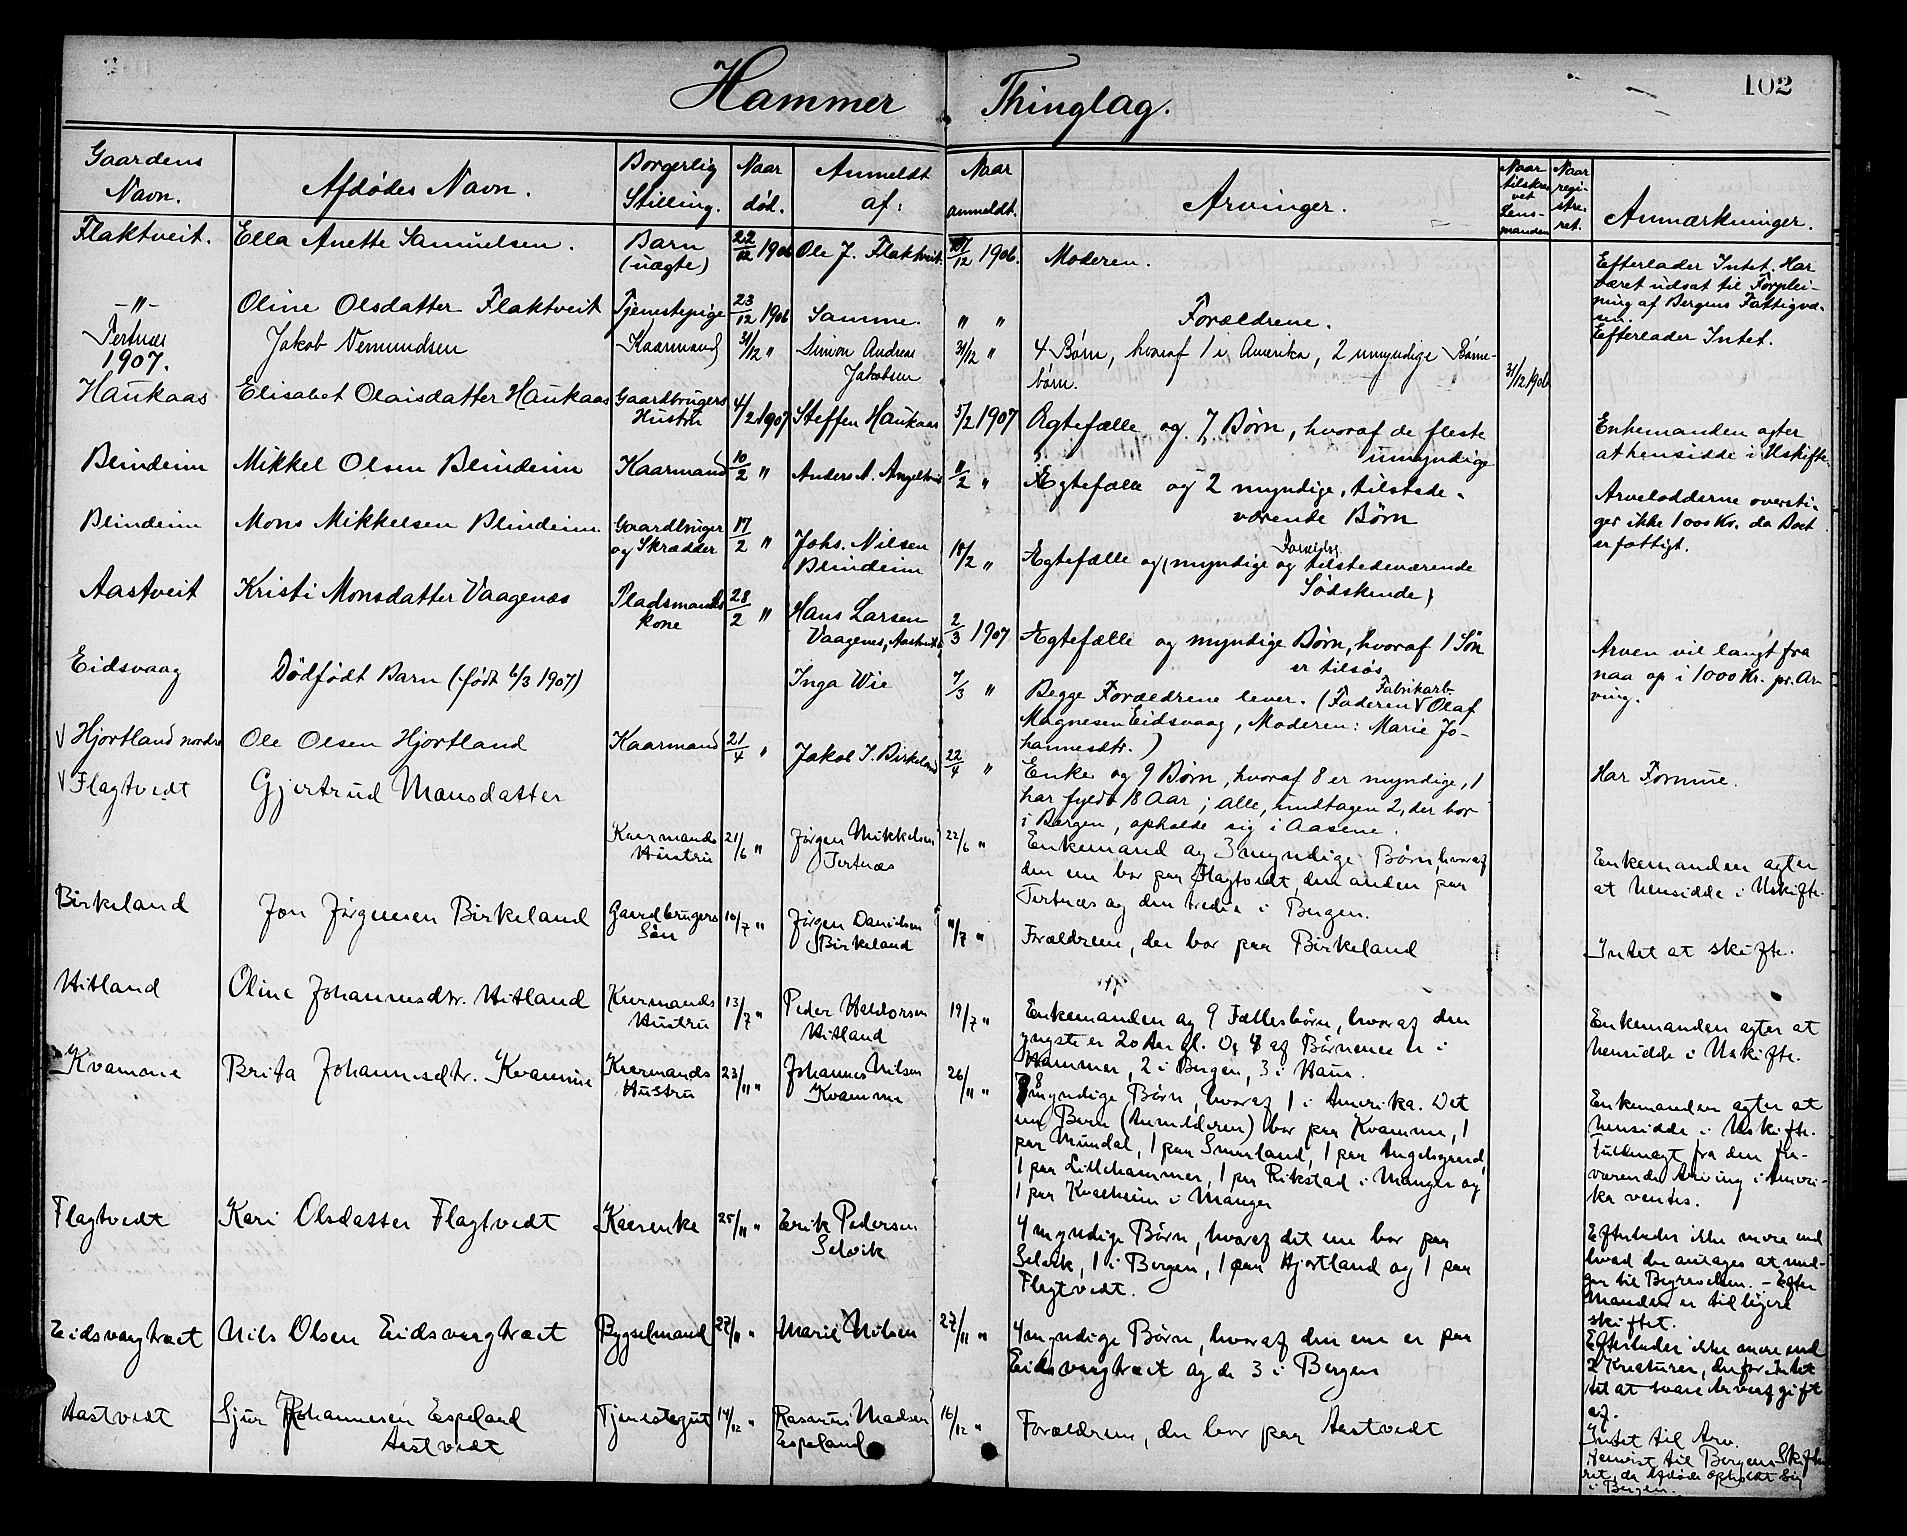 Hammer Thinglag.
102
Gaardens Navn.
Afdødes Navn.
Borgerlig Stilling.
Naar død.
Anmeldt af:
Naar anmeldt.
Arvinger.
Naar tilskrevet Lensmanden
Naar registreret.
Anmærkninger.
Flaktveit. Ella Anette Samuelsen. Barn (uægte) 22/12 1906 Ole J. Flaktveit. 27/12 1906. Moderen.
Efterlader Intet. Har
været udsat til Forplei-
ning af Bergens Fattigvæ-
sen.
-"- Oline Olsdatter Flaktveit Tjenestepige 23/12 1906 Samme. " " Forældrene.
Efterlader Intet.
Tertnæs Jakob Vemundsen Kaarmand 31/12 " Simon Andreas Jakobsen 31/12 " 4 Børn, hvoraf 1 i Amerika, 2 umyndige Børne-
børn. 31/12 1906
1907.
Haukaas Elisabet Olaisdatter Haukaas Gaardbrugers Hustru 4/2 1907 Steffen Haukaas 5/2 1907 Ægtefælle og 7 Børn, hvoraf de fleste
umyndige
Enkemanden agter
at hensidde i Uskifte.
Blindeim Mikkel Olsen Blindeim Kaarmand 10/2 " Anders A. Angeltveit 11/2 " Ægtefælle og 2 myndige, tilstede-
værende Børn
Arvelodderne oversti-
ger ikke 1000 Kr. da Boet
er fattigt.
Blindeim Mons Mikkelsen Blindeim Gaardbruger og Skrædder 17/2 " Johs. Nilsen Blindeim 18/2 " Ægtefælle og (myndige og tilstedeværende
Sødskende)
Aastveit Kristi Monsdatter Vaagenæs Pladsmands kone 28/2 " Hans Larsen Vaagenes, Aastveit 2/3 1907 Ægtefælle og myndige Børn, hvoraf 1 Søn
er tilsøs
Arven vil langt fra
naa op i 1000 Kr. pr. Ar-
ving.
Eidsvaag Dødfødt Barn (født 6/3 1907) Inga Wie 7/3 " Begge Forældrene lever. (Faderen Fabrikarb. Olaf
Magnesen Eidsvaag, Moderen: Marie Jo-
hannesdtr.)
V Hjortland nordre Ole Olsen Hjortland Kaarmand 21/4 " Jakob J. Birkeland 22/4 " Enke og 9 Børn, hvoraf 8 er myndige, 1
har fyldt 18 Aar; alle, undtagen 2, der bor
i Bergen, opholde sig i Aasene.
Har Formue.
V Flagtvedt Gjertrud Monsdatter Kaarmands Hustru 21/6 " Jørgen Mikkelsen Tertnæs 22/6 " Enkemand og 3 myndige Børn, hvoraf
den ene bor paa Flagtvedt, den anden paa
Tertnæs og den tredie i Bergen.
Enkemanden agter
at hensidde i Uskifte.
Birkeland Jon Jørgensen Birkeland Gaardbrugers Søn 10/7 " Jørgen Danielsen Birkeland 11/7 " Forældrene, der bor paa Birkeland
Intet at skifte.
Hitland Oline Johannesdtr. Hitland Kaarmands Hustru 13/7 " Peder Haldorsen Hitland 19/7 " Enkemanden og 9 Fællesbørn, hvoraf den
yngste er 20 Aar gl. Og 4 af Børnene er i
Hammer, 2 i Bergen, 3 i Haus.
Enkemanden agter at
hensidde i Uskifte.
Kvamme Brita Johannesdtr. Kvamme Kaarmands Hustru 23/11 " Johannes Nilsen Kvamme 26/11 " 8 myndige Børn, hvoraf 1 i Amerika. Det
ene Barn (Anmelderen) bor paa Kvamme, 1
paa Mundal, 1 paa Smørland, 1 paa
1 paa Littlehammer, 1 paa Rikstad i Manger og
1 paa Kvalheim i Manger
Enkemanden agter at
hensidde i Uskifte.
Fuldmagt fra den fra-
værende Arving i Ameri-
ka ventes.
Flagtvedt Kari Olsdatter Flagtvedt Kaarenke 25/11 " Erik Pedersen Selvik 4 myndige Børn, hvoraf det ene bor paa
Selvik, 1 i Bergen, 1 paa Hjortland og 1 paa
Flagtvedt.
Efterlader ikke mere end
hvad der antages at med-
gaa til Begravelsen. - Efter
Manden er tidligere
skiftet.
Eidsvaagtræet Nils Olsen Eidsvaagtræet Bygselmand 27/11 " Marie Nilsen 27/11 " 4 myndige Børn, hvoraf den ene er paa
Eidsvaagtræet og de 3 i Bergen
Efterlader ikke mere end
2 Kreaturer, derfor Intet
til at svare Arveafgift
af.
Aastvedt Sjur Johannesen Espeland Aastvedt Tjenestegut 14/12 " Rasmus Madsen Espeland 16/12 " Forældrene, der bor paa Aastvedt
Intet til Arv.
Henvist til Bergens Skifte
ret, da Afdøde opholdt sig
i Bergen.